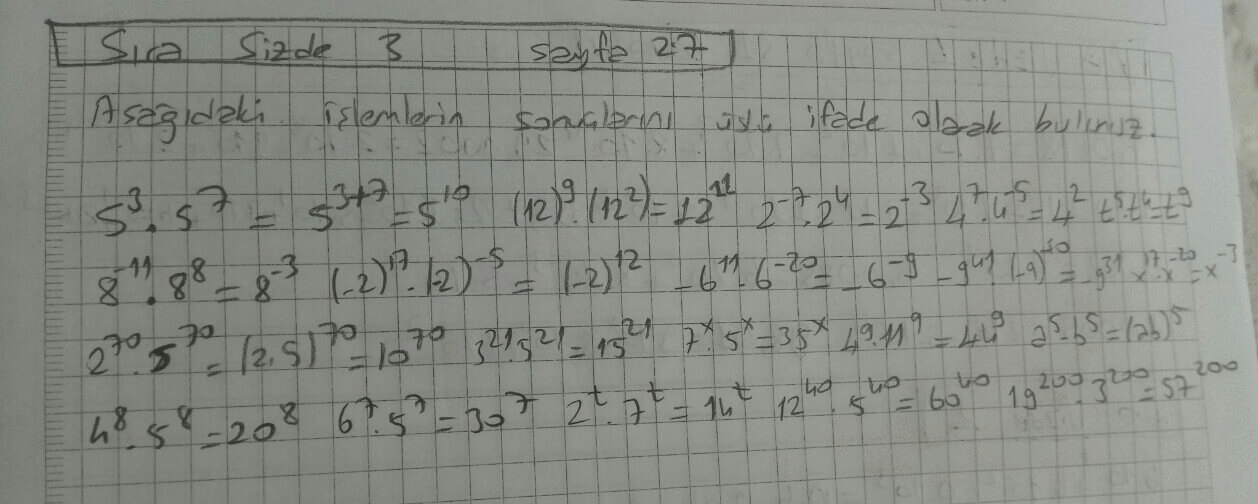 Sıra Sizde 3 sayfa 27
Aşağıdaki işlemlerin sonuçlarını üslü ifade olarak bulunuz.
5³.5⁷ = 5³⁺⁷ = 5¹⁰ (12)⁹.(12²) = 12¹¹ 2⁻⁷.2⁴ = 2⁻³ 4⁷.4⁻⁵ = 4² 7⁵.7⁴ = 7⁹
8⁻¹¹.8⁸ = 8⁻³ (-2)¹⁷.(-2)⁻⁵ = (-2)¹² -6¹¹.6⁻²⁰ = -6⁻⁹ -9⁴¹.(-9)⁻¹⁰ = -9³¹ x¹⁷.x⁻²⁰ = x⁻³
2⁷⁰.5⁷⁰ = (2.5)⁷⁰ = 10⁷⁰ 3²¹.5²¹ = 15²¹ 7ˣ.5ˣ = 35ˣ 4⁹.11⁹ = 44⁹ a⁵.b⁵ = (ab)⁵
4⁸.5⁸ = 20⁸ 6⁷.5⁷ = 30⁷ 2ᵗ.7ᵗ = 14ᵗ 12⁴⁰.5⁴⁰ = 60⁴⁰ 19²⁰⁰.3²⁰⁰ = 57²⁰⁰